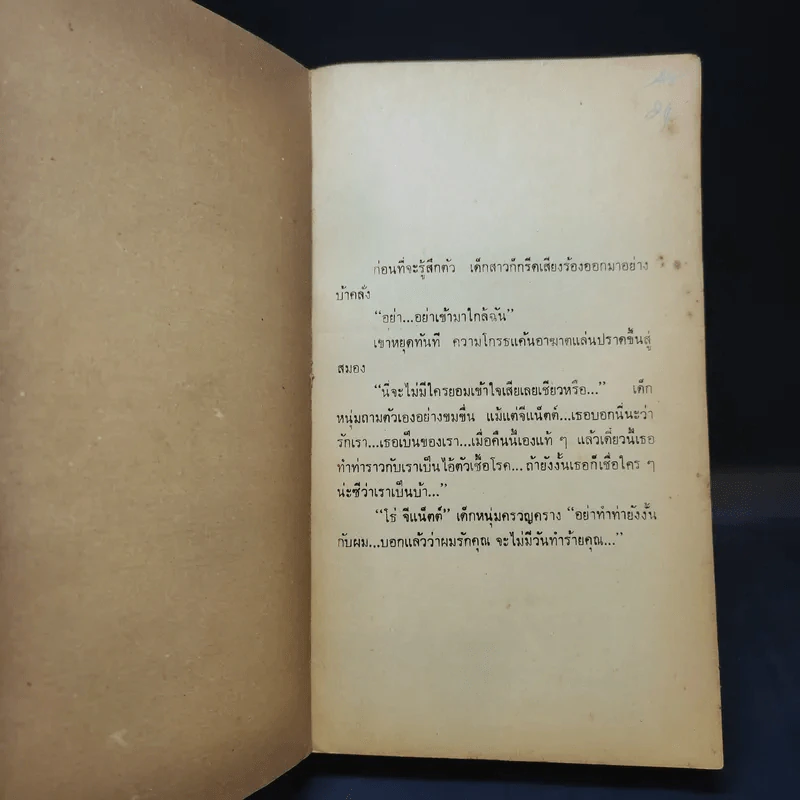 ก่อนที่จะรู้สึกตัว เด็กสาวก็กรีดเสียงร้องออกมาอย่าง
บ้าคลั่ง
“อย่า...อย่าเข้ามาใกล้ฉัน”
เขาหยุดทันที ความโกรธแค้นอาฆาตแล่นปราดขึ้นสู่
สมอง
“นี่จะไม่มีใครยอมเข้าใจเสียเลยเชียวหรือ...” เด็ก
หนุ่มถามตัวเองอย่างขมขื่น แม้แต่จีแน็ตต์...เธอบอกนี่นะว่า
รักเรา...เธอเป็นของเรา...เมื่อคืนนี้เองแท้ ๆ แล้วเดี๋ยวนี้เธอ
ทำท่าราวกับเราเป็นไอ้ตัวเชื้อโรค...ถ้ายังงั้นเธอก็เชื่อใคร ๆ
น่ะซีว่าเราเป็นบ้า...”
“โธ่ จีแน็ตต์” เด็กหนุ่มครวญคราง “อย่าทำท่ายังงั้น
กับผม...บอกแล้วว่าผมรักคุณ จะไม่มีวันทำร้ายคุณ...”